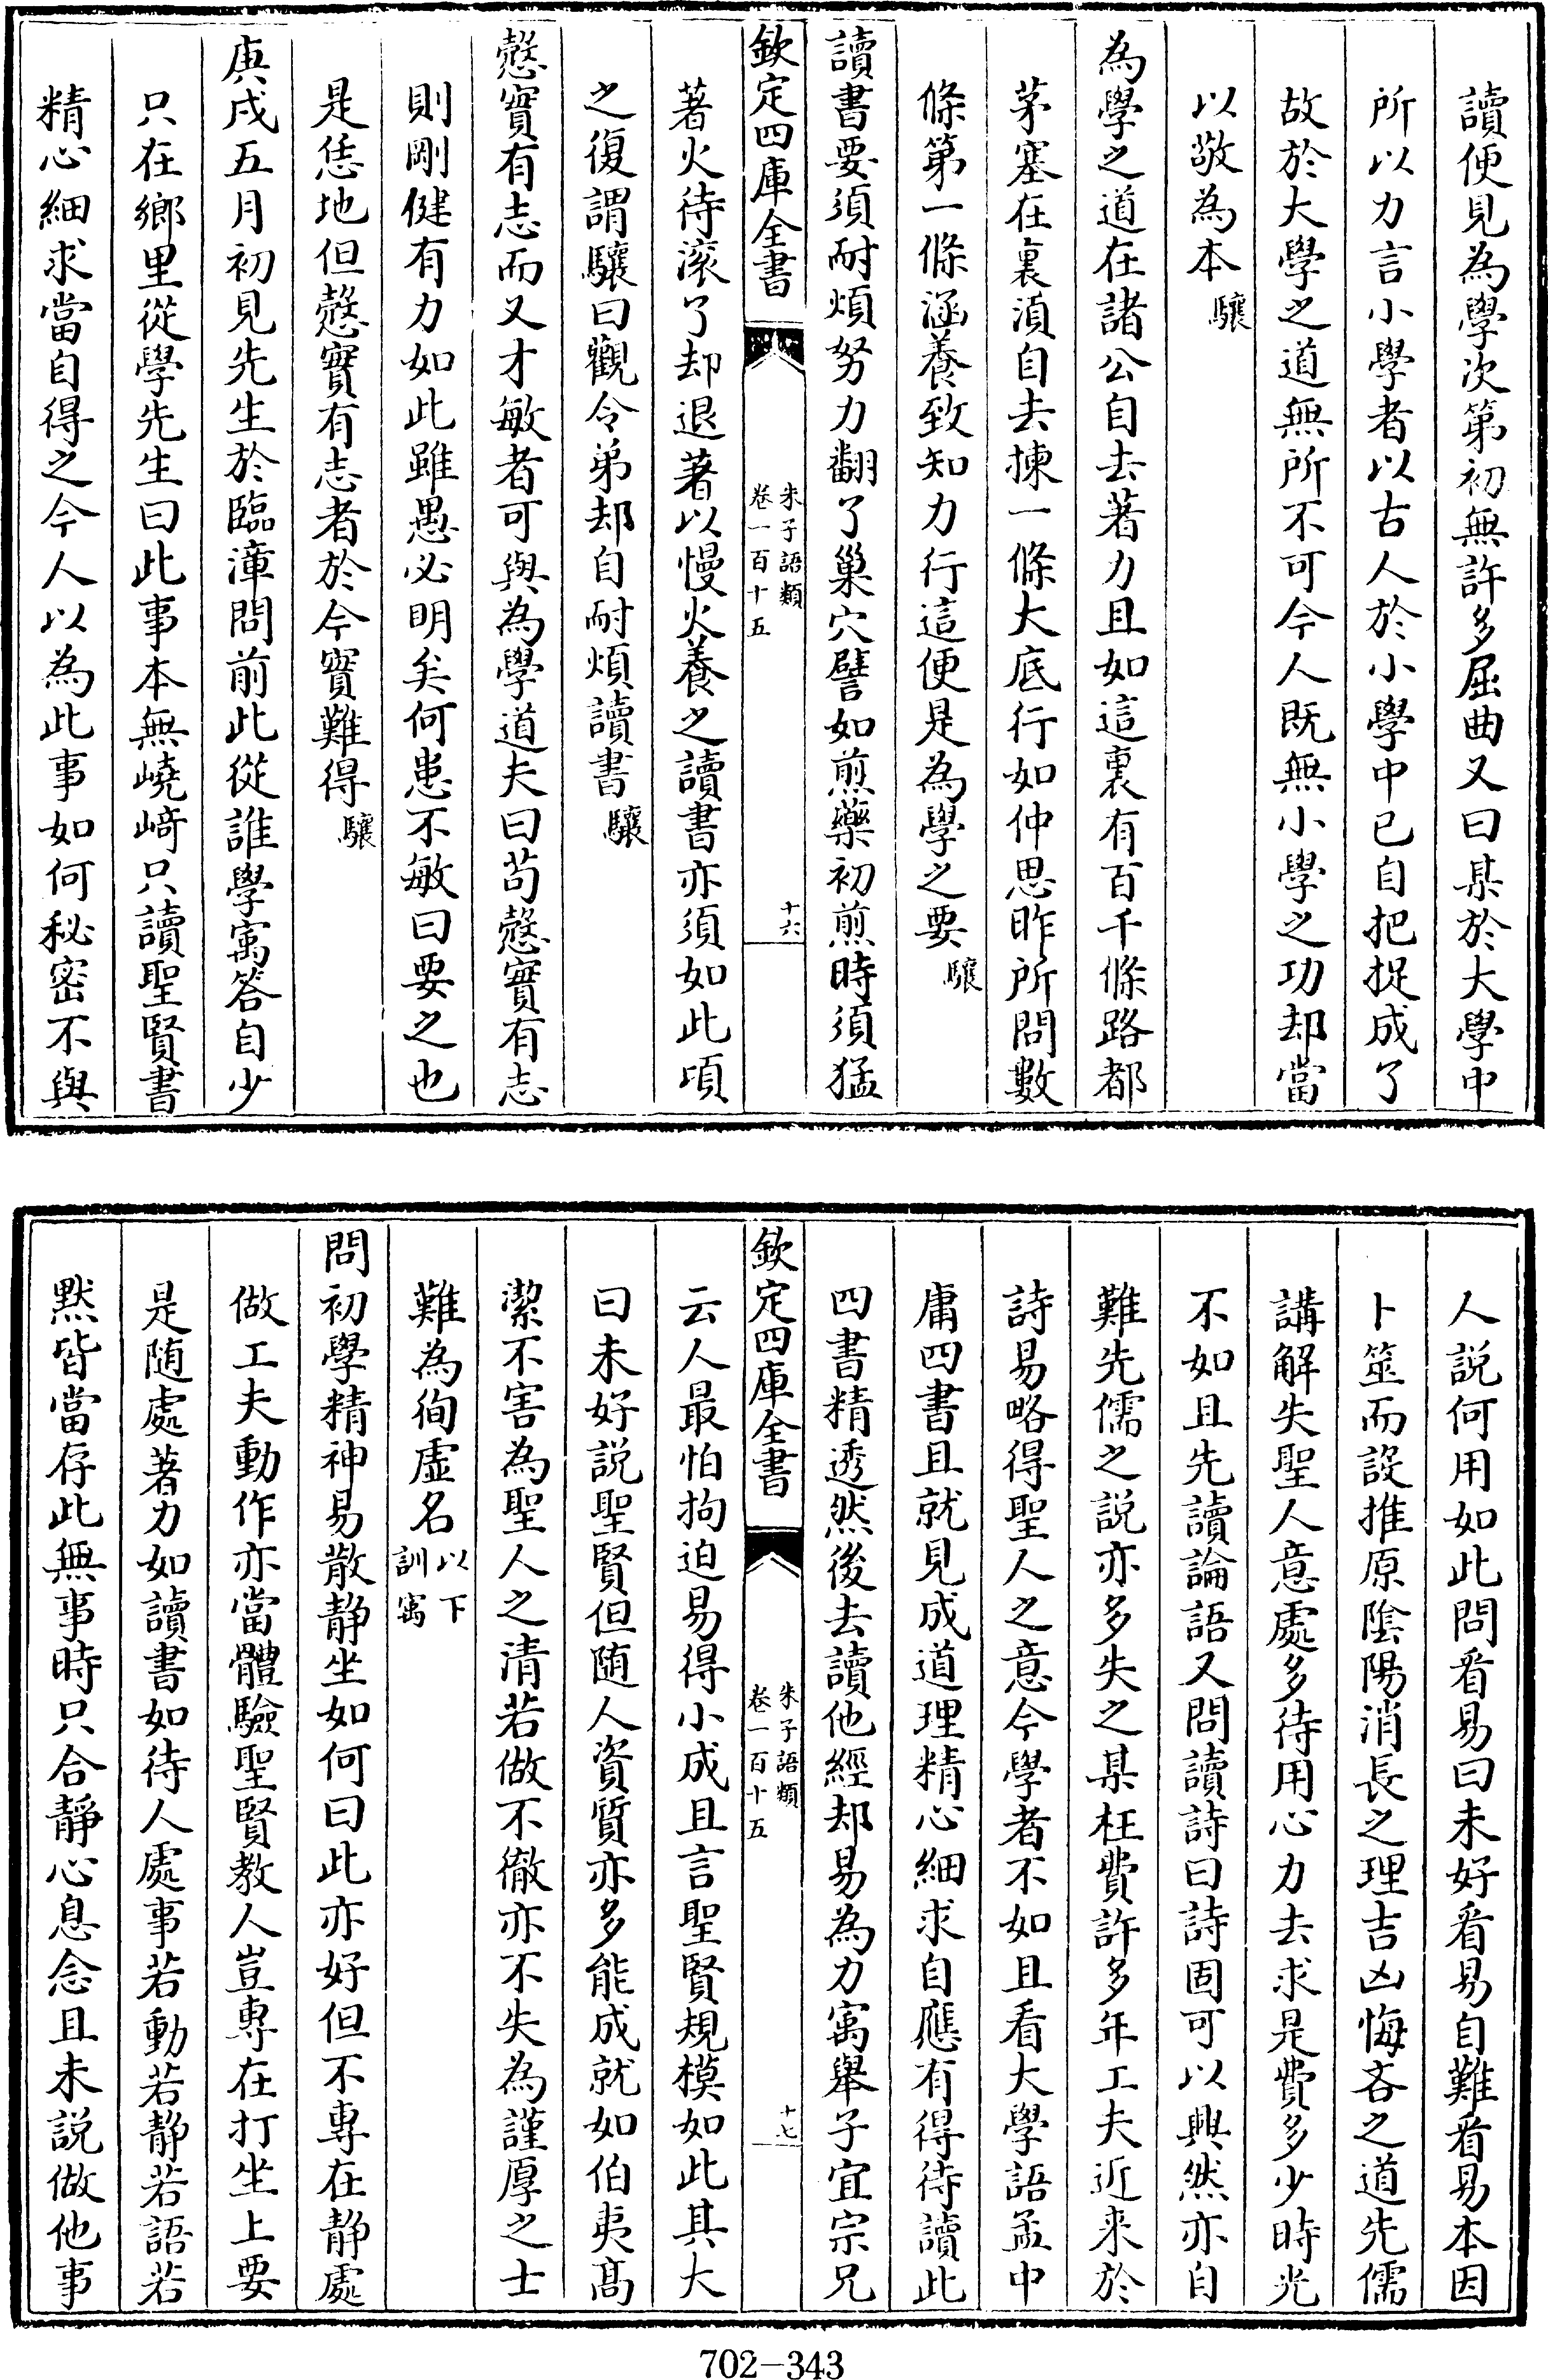 讀便見為學次第初無許多屈曲又曰某於大學中
所以力言小學者以古人於小學中已自把捉成了
故於大學之道無所不可今人既無小學之功却當
以敬為本驤
為學之道在諸公自去著力且如這裏有百千條路都
茅塞在裏湏自去揀一條大底行如仲思昨所問數
條第一條涵養致知力行這便是為學之要驤
讀書要須耐煩努力翻了巢穴譬如煎藥初煎時須猛
欽定四庫全書
朱子語類
卷一百十五
十六
著火待滚了却退著以慢火養之讀書亦須如此頃
之復謂驤曰觀令弟却自耐煩讀書驤
慤實有志而又才敏者可與為學道夫曰苟慤實有志
則剛健有力如此雖愚必明矣何患不敏曰要之也
是恁地但慤實有志者於今實難得驤
庚戌五月初見先生於臨漳問前此從誰學㝢答自少
只在鄉里從學先生曰此事本無嶢﨑只讀聖賢書
精心細求當自得之今人以為此事如何秘密不與
人説何用如此問㸔易曰未好㸔易自難㸔易本因
卜筮而設推原陰陽消長之理吉凶悔吝之道先儒
講解失聖人意處多待用心力去求是費多少時光
不如且先讀論語又問讀詩曰詩固可以興然亦自
難先儒之説亦多失之某枉費許多年工夫近来於
詩易略得聖人之意今學者不如且看大學語孟中
庸四書且就見成道理精心細求自應有得待讀此
四書精透然後去讀他經却易為力㝢舉子宜宗兄
欽定四庫全書
朱子語類
卷一百十五
十七
云人最怕拘迫易得小成且言聖賢規模如此其大
曰未好説聖賢但随人資質亦多能成就如伯夷髙
潔不害為聖人之清若做不徹亦不失為謹厚之士
難為徇虛名以下訓㝢
問初學精神易散静坐如何曰此亦好但不專在静處
做工夫動作亦當體驗聖賢教人豈專在打坐上要
是随處著力如讀書如待人處事若動若静若語若
黙皆當存此無事時只合靜心息念且未説做他事
702-343